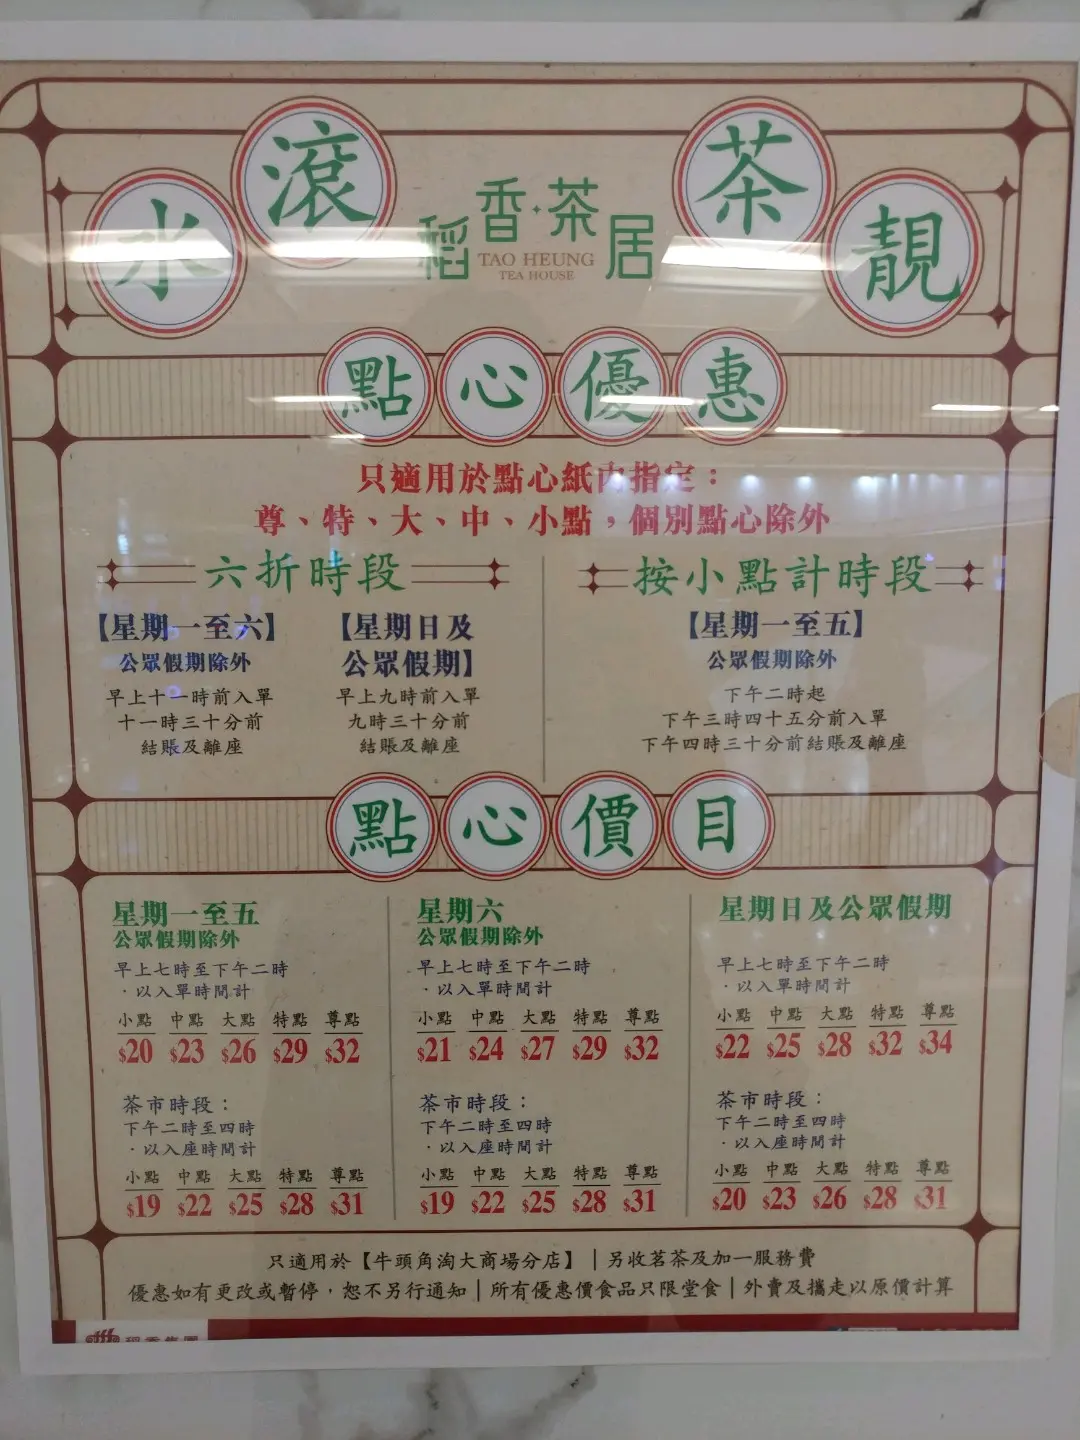 水滾茶靚
稻香·茶居
TAO HEUNG
TEA HOUSE
點心優惠
只適用於點心紙內指定：
尊、特、大、中、小點，個別點心除外
六折時段
【星期一至六】
公眾假期除外
早上十一時前入單
十一時三十分前
結賬及離座
【星期日及
公眾假期】
早上九時前入單
九時三十分前
結賬及離座
按小點計時段
【星期一至五】
公眾假期除外
下午二時起
下午三時四十五分前入單
下午四時三十分前結賬及離座
點心價目
星期一至五
公眾假期除外
早上七時至下午二時
·以入單時間計
小點 中點 大點 特點 尊點
$20 $23 $26 $29 $32
茶市時段：
下午二時至四時
·以入座時間計
小點 中點 大點 特點 尊點
$19 $22 $25 $28 $31
星期六
公眾假期除外
早上七時至下午二時
·以入單時間計
小點 中點 大點 特點 尊點
$21 $24 $27 $29 $32
茶市時段：
下午二時至四時
·以入座時間計
小點 中點 大點 特點 尊點
$19 $22 $25 $28 $31
星期日及公眾假期
早上七時至下午二時
·以入單時間計
小點 中點 大點 特點 尊點
$22 $25 $28 $32 $34
茶市時段：
下午二時至四時
·以入座時間計
小點 中點 大點 特點 尊點
$20 $23 $26 $28 $31
只適用於【牛頭角淘大商場分店】｜另收茗茶及加一服務費
優惠如有更改或暫停，恕不另行通知｜所有優惠價食品只限堂食｜外賣及攜走以原價計算